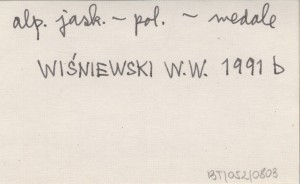 alp. jask. – pol. – medale
WIŚNIEWSKI W.W. 1991 b
BT/052/0803